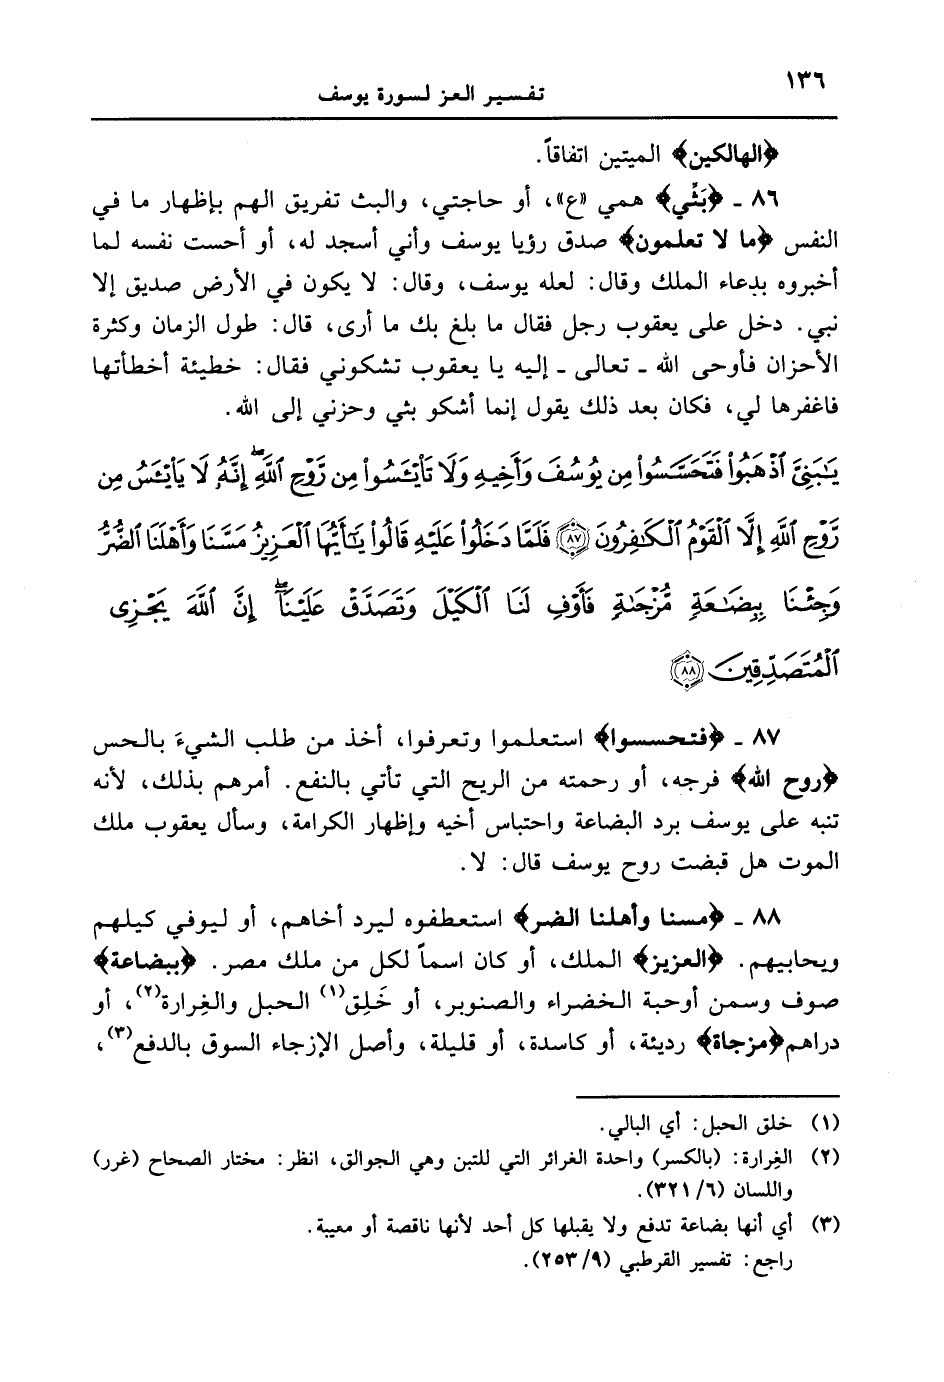 ١٣٦
تفسير العز لسورة يوسف
﴿الهالكين﴾ الميتين اتفاقاً.
٨٦ ـ ﴿بَثِّي﴾ همي «ع»، أو حاجتي، والبث تفريق الهم بإظهار ما في
النفس ﴿ما لا تعلمون﴾ صدق رؤيا يوسف وأني أسجد له، أو أحست نفسه لما
أخبروه بدعاء الملك وقال: لعله يوسف، وقال: لا يكون في الأرض صديق إلا
نبي. دخل على يعقوب رجل فقال ما بلغ بك ما أرى، قال: طول الزمان وكثرة
الأحزان فأوحى الله ـ تعالى ـ إليه يا يعقوب تشكوني فقال: خطيئة أخطأتها
فاغفرها لي، فكان بعد ذلك يقول إنما أشكو بثي وحزني إلى الله.
يَٰبَنِيَّ ٱذْهَبُوا۟ فَتَحَسَّسُوا۟ مِن يُوسُفَ وَأَخِيهِ وَلَا تَا۟يْـَٔسُوا۟ مِن رَّوْحِ ٱللَّهِ ۖ إِنَّهُۥ لَا يَا۟يْـَٔسُ مِن
رَّوْحِ ٱللَّهِ إِلَّا ٱلْقَوْمُ ٱلْكَٰفِرُونَ ۝٨٧ فَلَمَّا دَخَلُوا۟ عَلَيْهِ قَالُوا۟ يَٰٓأَيُّهَا ٱلْعَزِيزُ مَسَّنَا وَأَهْلَنَا ٱلضُّرُّ
وَجِئْنَا بِبِضَٰعَةٍ مُّزْجَىٰةٍ فَأَوْفِ لَنَا ٱلْكَيْلَ وَتَصَدَّقْ عَلَيْنَآ ۖ إِنَّ ٱللَّهَ يَجْزِى
ٱلْمُتَصَدِّقِينَ ۝٨٨
٨٧ ـ ﴿فتحسسوا﴾ استعلموا وتعرفوا، أخذ من طلب الشيءَ بالحس
﴿روح الله﴾ فرجه، أو رحمته من الريح التي تأتي بالنفع. أمرهم بذلك، لأنه
تنبه على يوسف برد البضاعة واحتباس أخيه وإظهار الكرامة، وسأل يعقوب ملك
الموت هل قبضت روح يوسف قال: لا.
٨٨ ـ ﴿مسنا وأهلنا الضر﴾ استعطفوه ليرد أخاهم، أو ليوفي كيلهم
ويحابيهم. ﴿العزيز﴾ الملك، أو كان اسماً لكل من ملك مصر. ﴿ببضاعة﴾
صوف وسمن أوحبة الخضراء والصنوبر، أو خَلِق(١) الحبل والغِرارة(٢)، أو
دراهم﴿مزجاة﴾ رديئة، أو كاسدة، أو قليلة، وأصل الإزجاء السوق بالدفع(٣)،
(١) خلق الحبل: أي البالي.
(٢) الغِرارة: (بالكسر) واحدة الغرائر التي للتبن وهي الجوالق، انظر: مختار الصحاح (غرر)
واللسان (٦/ ٣٢١).
(٣) أي أنها بضاعة تدفع ولا يقبلها كل أحد لأنها ناقصة أو معيبة.
راجع: تفسير القرطبي (٩/ ٢٥٣).